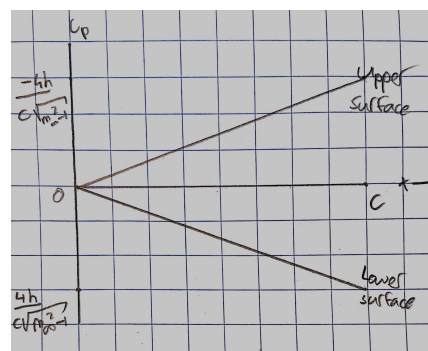 Cp
-4h
C√m∞²-1
Upper
surface
O
C
x
Lower
surface
4h
C√m∞²-1